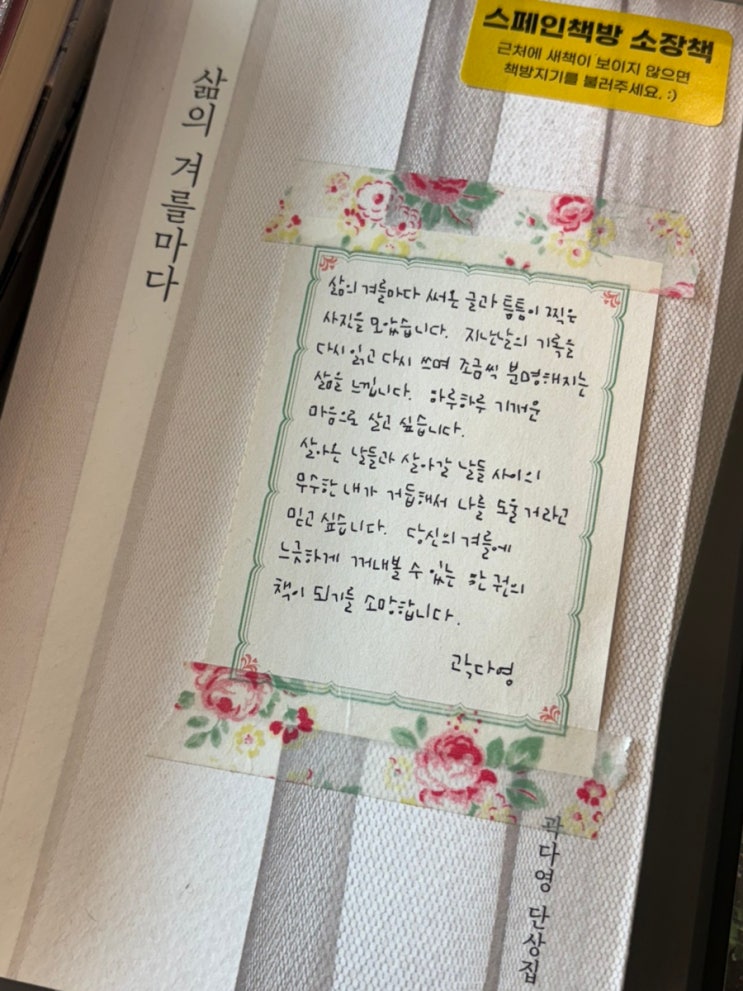 스페인책방 소장책
근처에 새책이 보이지 않으면
책방지기를 불러주세요. :)
삶의 겨를마다
삶의 겨를마다 써온 글과 틈틈이 찍은
사진을 모았습니다. 지난날의 기록을
다시 읽고 다시 쓰며 조금씩 분명해지는
삶을 느낍니다. 하루하루 기꺼운
마음으로 살고 싶습니다.
살아온 날들과 살아갈 날들 사이의
무수한 내가 거듭해서 나를 도울 거라고
믿고 싶습니다. 당신의 겨를에
느긋하게 꺼내볼 수 있는 한 권의
책이 되기를 소망합니다.
곽다영
곽다영 단상집